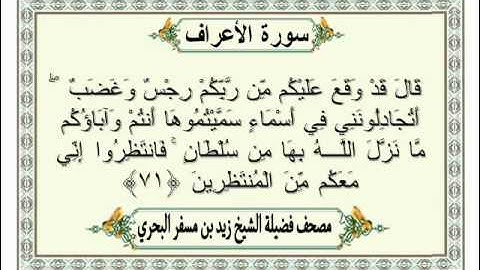 سورة الأعراف
قَالَ قَدْ وَقَعَ عَلَيْكُم مِّن رَّبِّكُمْ رِجْسٌ وَغَضَبٌ ۖ
أَتُجَادِلُونَنِي فِي أَسْمَاءٍ سَمَّيْتُمُوهَا أَنتُمْ وَآبَاؤُكُم
مَّا نَزَّلَ اللَّـهُ بِهَا مِن سُلْطَانٍ ۚ فَانتَظِرُوا إِنِّي
مَعَكُم مِّنَ الْمُنتَظِرِينَ ﴿٧١﴾
مصحف فضيلة الشيخ زيد بن مسفر البحري